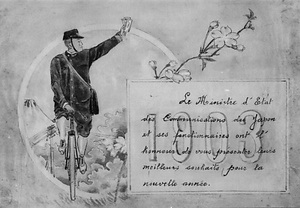 Le Ministre d'Etat
des Communications du Japon
et ses fonctionnaires ont l'
honneur de vous présenter leurs
meilleurs souhaits pour la
nouvelle année.